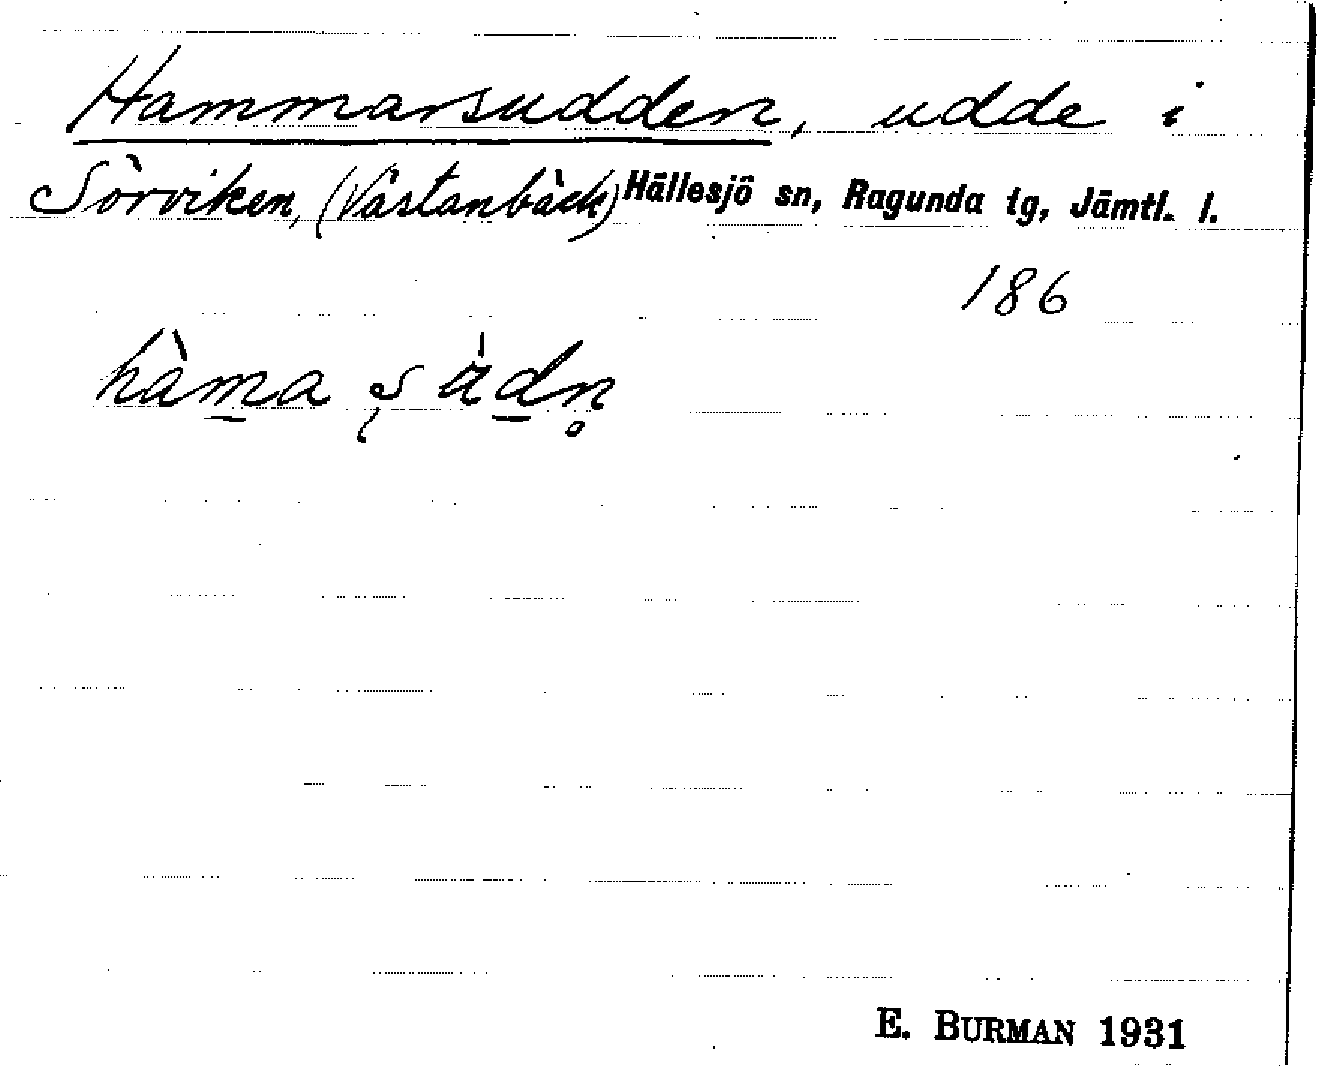 Hammarsudden, udde i
Sörviken, (Västanbäck) Hällesjö sn, Ragunda tg, Jämtl. l.
186
hàma ʂ ùdn̥
E. BURMAN 1931